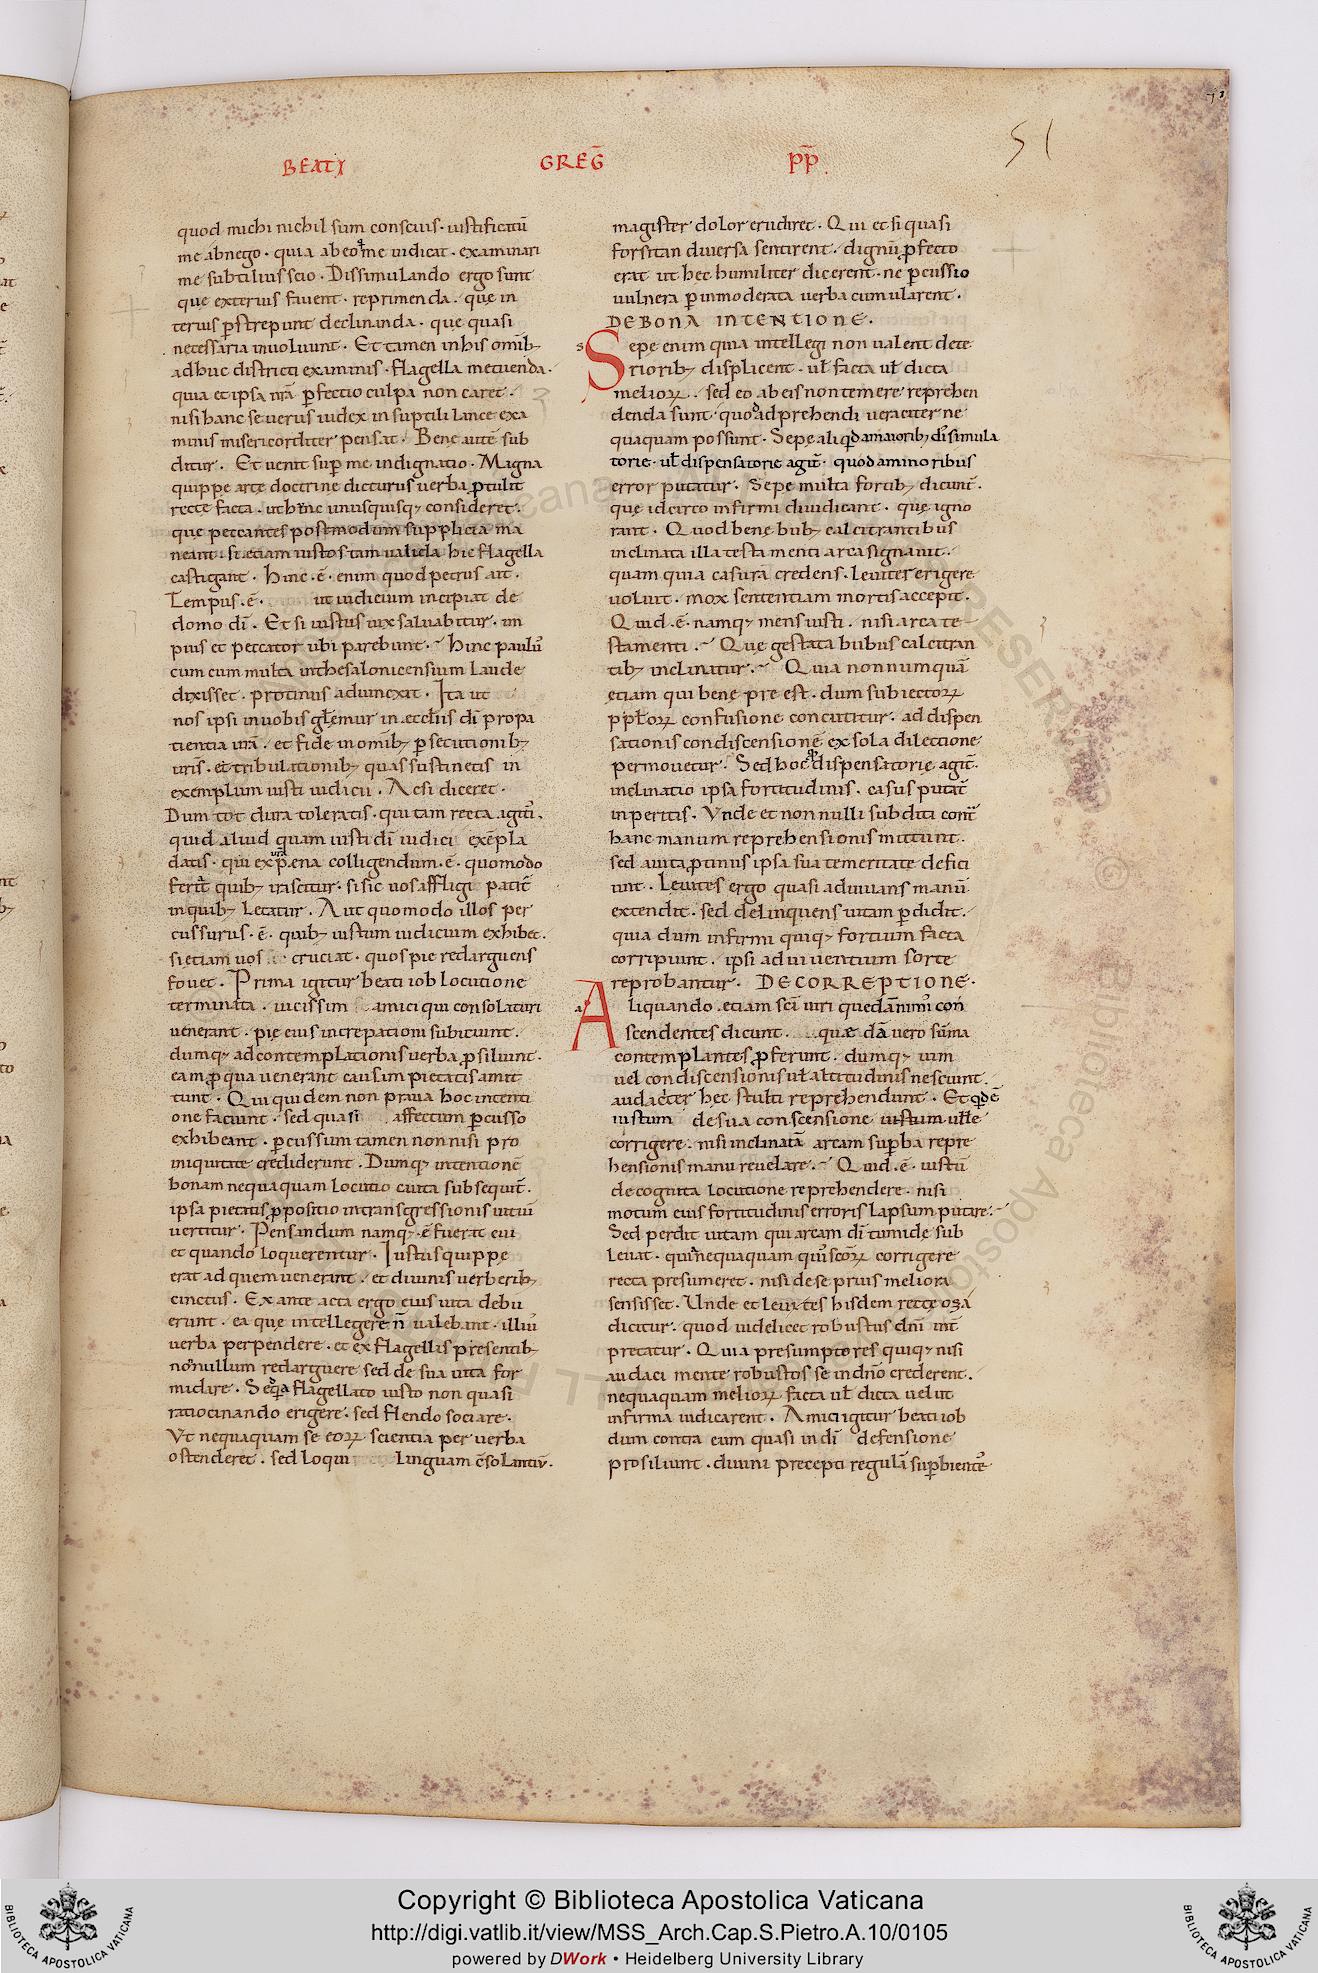 51
BEATI GREḠ P̄P̄.
quod michi nichil sum conscius · iustificatū
me abnego · quia ab eo q̇ me iudicat · examinari
me subtilius scio · Dissimulando ergo sunt
quę exterius fauent · reprimenda · quę in
terius ꝑstrepunt declinanda · quę quasi
necessaria inuoluunt · Et tamen in his omīb;
adhuc districti examinis · flagella metuenda ·
quia et ipsa nr̄a ꝑfectio culpa non caret ·
nisi hanc seuerus iudex in suptili lance exa
minis misericorditer pensat · Bene autē sub
ditur · Et uenit suꝑ me indignatio · Magna
quippe arte doctrine dicturus uerba ꝓtulit
recte facta · ut hinc unusquisq; consideret ·
quę peccantes postmodum supplicia ma
neant · si etiam iustos tam ualida hic flagella
castigant · Hinc · ē · enim quod petrus ait ·
Tempus · ē · ut iudicium incipiat de
domo dī · Et si iustus uix saluabitur · im
pius et peccator ubi parebunt · Hinc paulu᷒
cum cum multa in thesalonicensium laude
dixisset · protinus adiunexit · Ita ut
nos ipsi in uobis gl̄emur in eccl̄iis dī pro pa
tientia ur̄a · et fide in omīb; ꝑsecutionib;
ur̄is · et tribulationib; quas sustinetis in
exemplum iusti iudicii · Ac si diceret ·
Dum tot dura toleratis · qui tam recta agitis ·
quid aliud quam iusti dī iudici exēpla
datis · qui ex ur̄a pęna colligendum · ē · quomodo
feriat quib; irascitur · si sic uos affligi patit᷒
in quib; letatur · Aut quomodo illos per
cussurus · ē · quib; iustum iudicium exhibet ·
si etiam uos cruciat · quos pie redarguens
fouet · Prima igitur beati iob locutione
terminata · uicissim amici qui consolaturi
uenerant · pię eius increpationi subiciunt ·
dumq; ad contemplationis uerba ꝓsiliunt ·
eam ꝓ qua uenerant causam pietatis amit
tunt · Qui quidem non praua hoc intenti
one faciunt · sed quasi affectum ꝑcusso
exhibeant · ꝑcussum tamen non nisi pro
iniquitate crediderunt · Dumq; intentionē
bonam nequaquam locutio cauta subsequit᷒ ·
ipsa pietatis ꝓpositio in transgressionis uitiū
uertitur · Pensandum namq; · ē fuerat cui
et quando loquerentur · Iustus quippe
erat ad quem uenerant · et diuinis uerberib;
cinctus · Ex ante acta ergo eius uita debu
erunt · ea quę intellegere n̄ ualebant · illiu᷒
uerba perpendere · et ex flagellis presentib;
non nullum redarguere sed de sua uita for
midare · Seq̣ a flagellato iusto non quasi
ratiocinando erigere · sed flendo sociare ·
Vt nequaquam se eoꝝ scientia per uerba
ostenderet · sed loqui linguam c̄solantiu᷒ ·
magister dolor erudiret · Qui et si quasi
forsitan diuersa sentirent · dignū ꝓfecto
erat ut hęc humiliter dicerent · ne ꝑcussio
uulnera ꝑ inmoderata uerba cumularent ·
DE BONA INTENTIONE ·
Sepe enim quia intellegi non ualent dete
riorib; displicent · ul̄ facta ul̄ dicta
melioꝝ · sed eo ab eis non temere reprehen
denda sunt · quo adprehendi ueraciter ne
quaquam possunt · Sepe aliqd a maiorib; disimula
torie · ul̄ dispensatorie agit᷒ · quod a minoribus
error putatur · Sepe multa fortib; dicunt᷒ ·
quę idcirco infirmi diiudicant · quę igno
rant · Quod bene bub; calcitrantibus
inclinata illa testamenti arca signauit ·
quam quia casurā credens · leuites erigere
uoluit · mox sententiam mortis accepit ·
Quid · ē · namq; mens iusti · nisi arca te
stamenti · Quę gestata bubus calcitran
tib; inclinatur · Quia non numquā
etiam qui bene pre est · dum subiectoꝝ
pp̄loꝝ confusione concutitur · ad dispen
sationis condiscensionē ex sola dilectione
permouetur · Sed hoc q̇ dispensatorie agit᷒ ·
inclinatio ipsa fortitudinis · casus putat᷒
inperitis · Vnde et non nulli subditi cont᷒
hanc manum reprehensionis mittunt ·
sed a uita ꝓtinus ipsa sua temeritate defici
unt · Leuites ergo quasi adiuuans manū
extendit · sed delinquens uitam ꝑdidit ·
quia dum infirmi quiq; fortium facta
corripiunt · ipsi ad uiuentium sorte
reprobantur · DE CORREPTIONE ·
Aliquando etiam scī uiri quedā nimi᷒ con
scendentes dicunt · quædā uero sūma
contemplantes ꝓferunt · dumq; uim
uel condiscensionis ul̄ altitudinis nesciunt ·
audacter hęc stulti reprehendunt · Et qd ē
iustum de sua conscensione iustum uelle
corrigere · nisi inclinatā arcam suꝑba repre
hensionis manu reuelare · Quid · ē · iustū
de cognita locutione reprehendere · nisi
motum eius fortitudinis erroris lapsum putare ·
Sed perdit uitam qui arcam dī tumide sub
leuat · quia nequaquam quis scōꝝ corrigere
recta presumeret · nisi de se prius meliora
sensisset · Unde et leuites hisdem recte ozā
dicitur · quod uidelicet robustus dn̄i int᷒
pretatur · Quia presumptores quiq; nisi
audaci mente robustos se in dn̄o crederent ·
nequaquam melioꝝ facta ul̄ dicta uelut
infirma iudicarent · Amici igitur beati iob
dum contra eum quasi in dī defensione
prosiliunt · diuini precepti regulā suꝑbiente᷒
Copyright © Biblioteca Apostolica Vaticana
http://digi.vatlib.it/view/MSS_Arch.Cap.S.Pietro.A.10/0105
powered by DWork • Heidelberg University Library
BIBLIOTECA APOSTOLICA VATICANA
BIBLIOTECA APOSTOLICA VATICANA